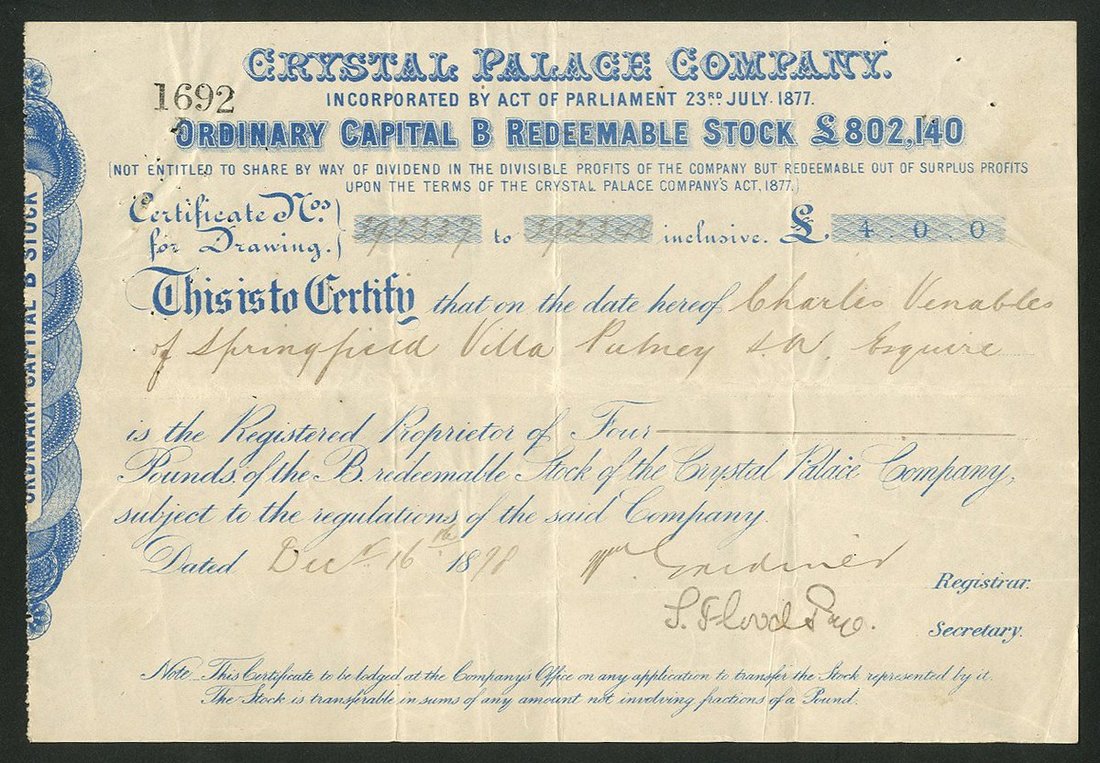 CRYSTAL PALACE COMPANY.
1692
INCORPORATED BY ACT OF PARLIAMENT 23RD JULY. 1877.
ORDINARY CAPITAL B REDEEMABLE STOCK £802,140
(NOT ENTITLED TO SHARE BY WAY OF DIVIDEND IN THE DIVISIBLE PROFITS OF THE COMPANY BUT REDEEMABLE OUT OF SURPLUS PROFITS
UPON THE TERMS OF THE CRYSTAL PALACE COMPANY'S ACT, 1877.)
Certificate Nos
for Drawing. to inclusive. £ 4 0 0
This is to Certify that on the date hereof Charles Venables
of Springfield Villa Putney S.W. Esquire
is the Registered Proprietor of Four
Pounds of the B. redeemable Stock of the Crystal Palace Company,
subject to the regulations of the said Company.
Dated Decr 16th 1890
Wm Gardiner
Registrar.
S. Flood Page.
Secretary.
Note - This Certificate to be lodged at the Company's Office on any application to transfer the Stock represented by it.
The Stock is transferable in sums of any amount not involving fractions of a Pound.
ORDINARY CAPITAL B STOCK